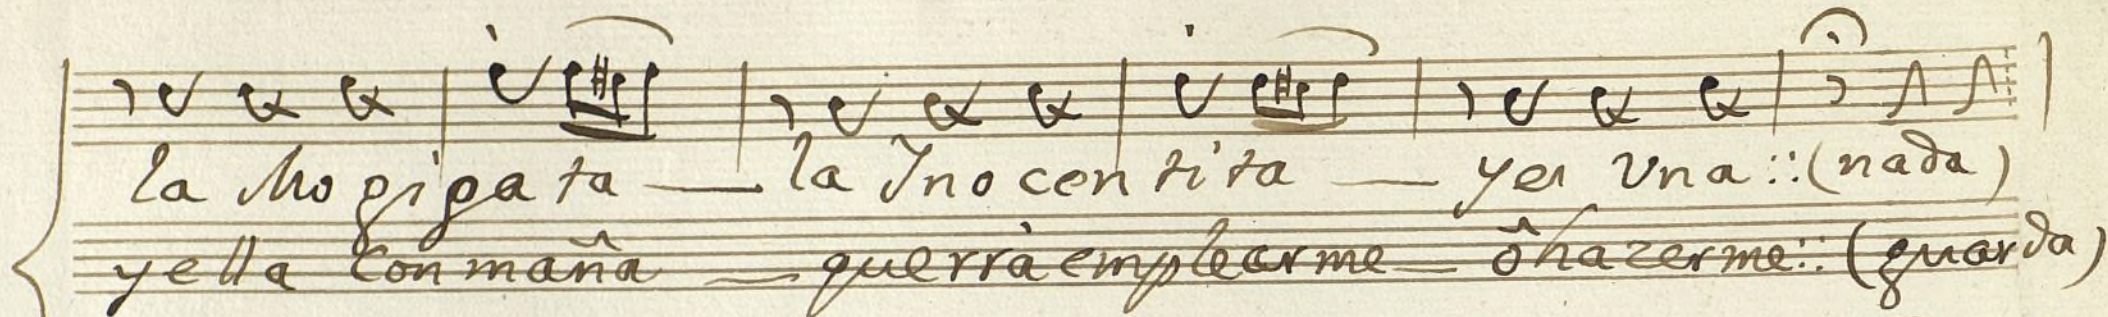 la Mo gi ga ta — la Ino cen ti ta — yes Una :: (nada)
y e lla Con maña — querrà emplearme — ô hazerme :: (guarda)